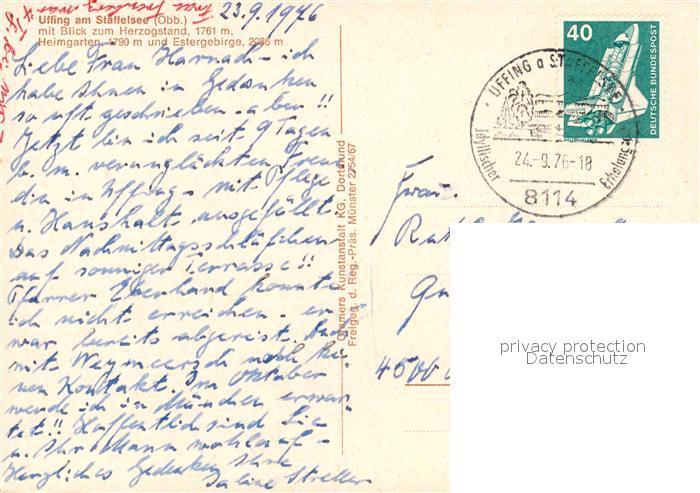 23.9.1976
Uffing am Staffelsee (Obb.)
mit Blick zum Herzogstand, 1761 m,
Heimgarten, 1790 m und Estergebirge, 2086 m
Liebe Frau Harnach - ich
habe Ihnen in Gedanken
so oft geschrieben - aben !!
Jetzt bin ich seit 9 Tagen
b. m. verunglückten Freun
din in Uffing - mit Pflege
u. Haushalt ausgefüllt.
Das Nachmittagsschläfchen
auf sonniger Terrasse !!
Pfarrer Eberhard konnte
ich nicht erreichen - er
war bereits abgereist. Auch
mit noch kei-
nen Kontakt. Im Oktober
werde ich in München erwar-
tet!! Hoffentlich sind Sie
u. Ihr Mann wohlauf -
Herzliches Gedenken Ihre
Streller
Cramers Kunstanstalt KG, Dortmund
Freigeg. d. Reg.-Präs. Münster 2754/67
40
DEUTSCHE BUNDESPOST
UFFING a STAFFELSEE
Idyllischer
24.-9.76-18
8114
Frau
4500
privacy protection
Datenschutz